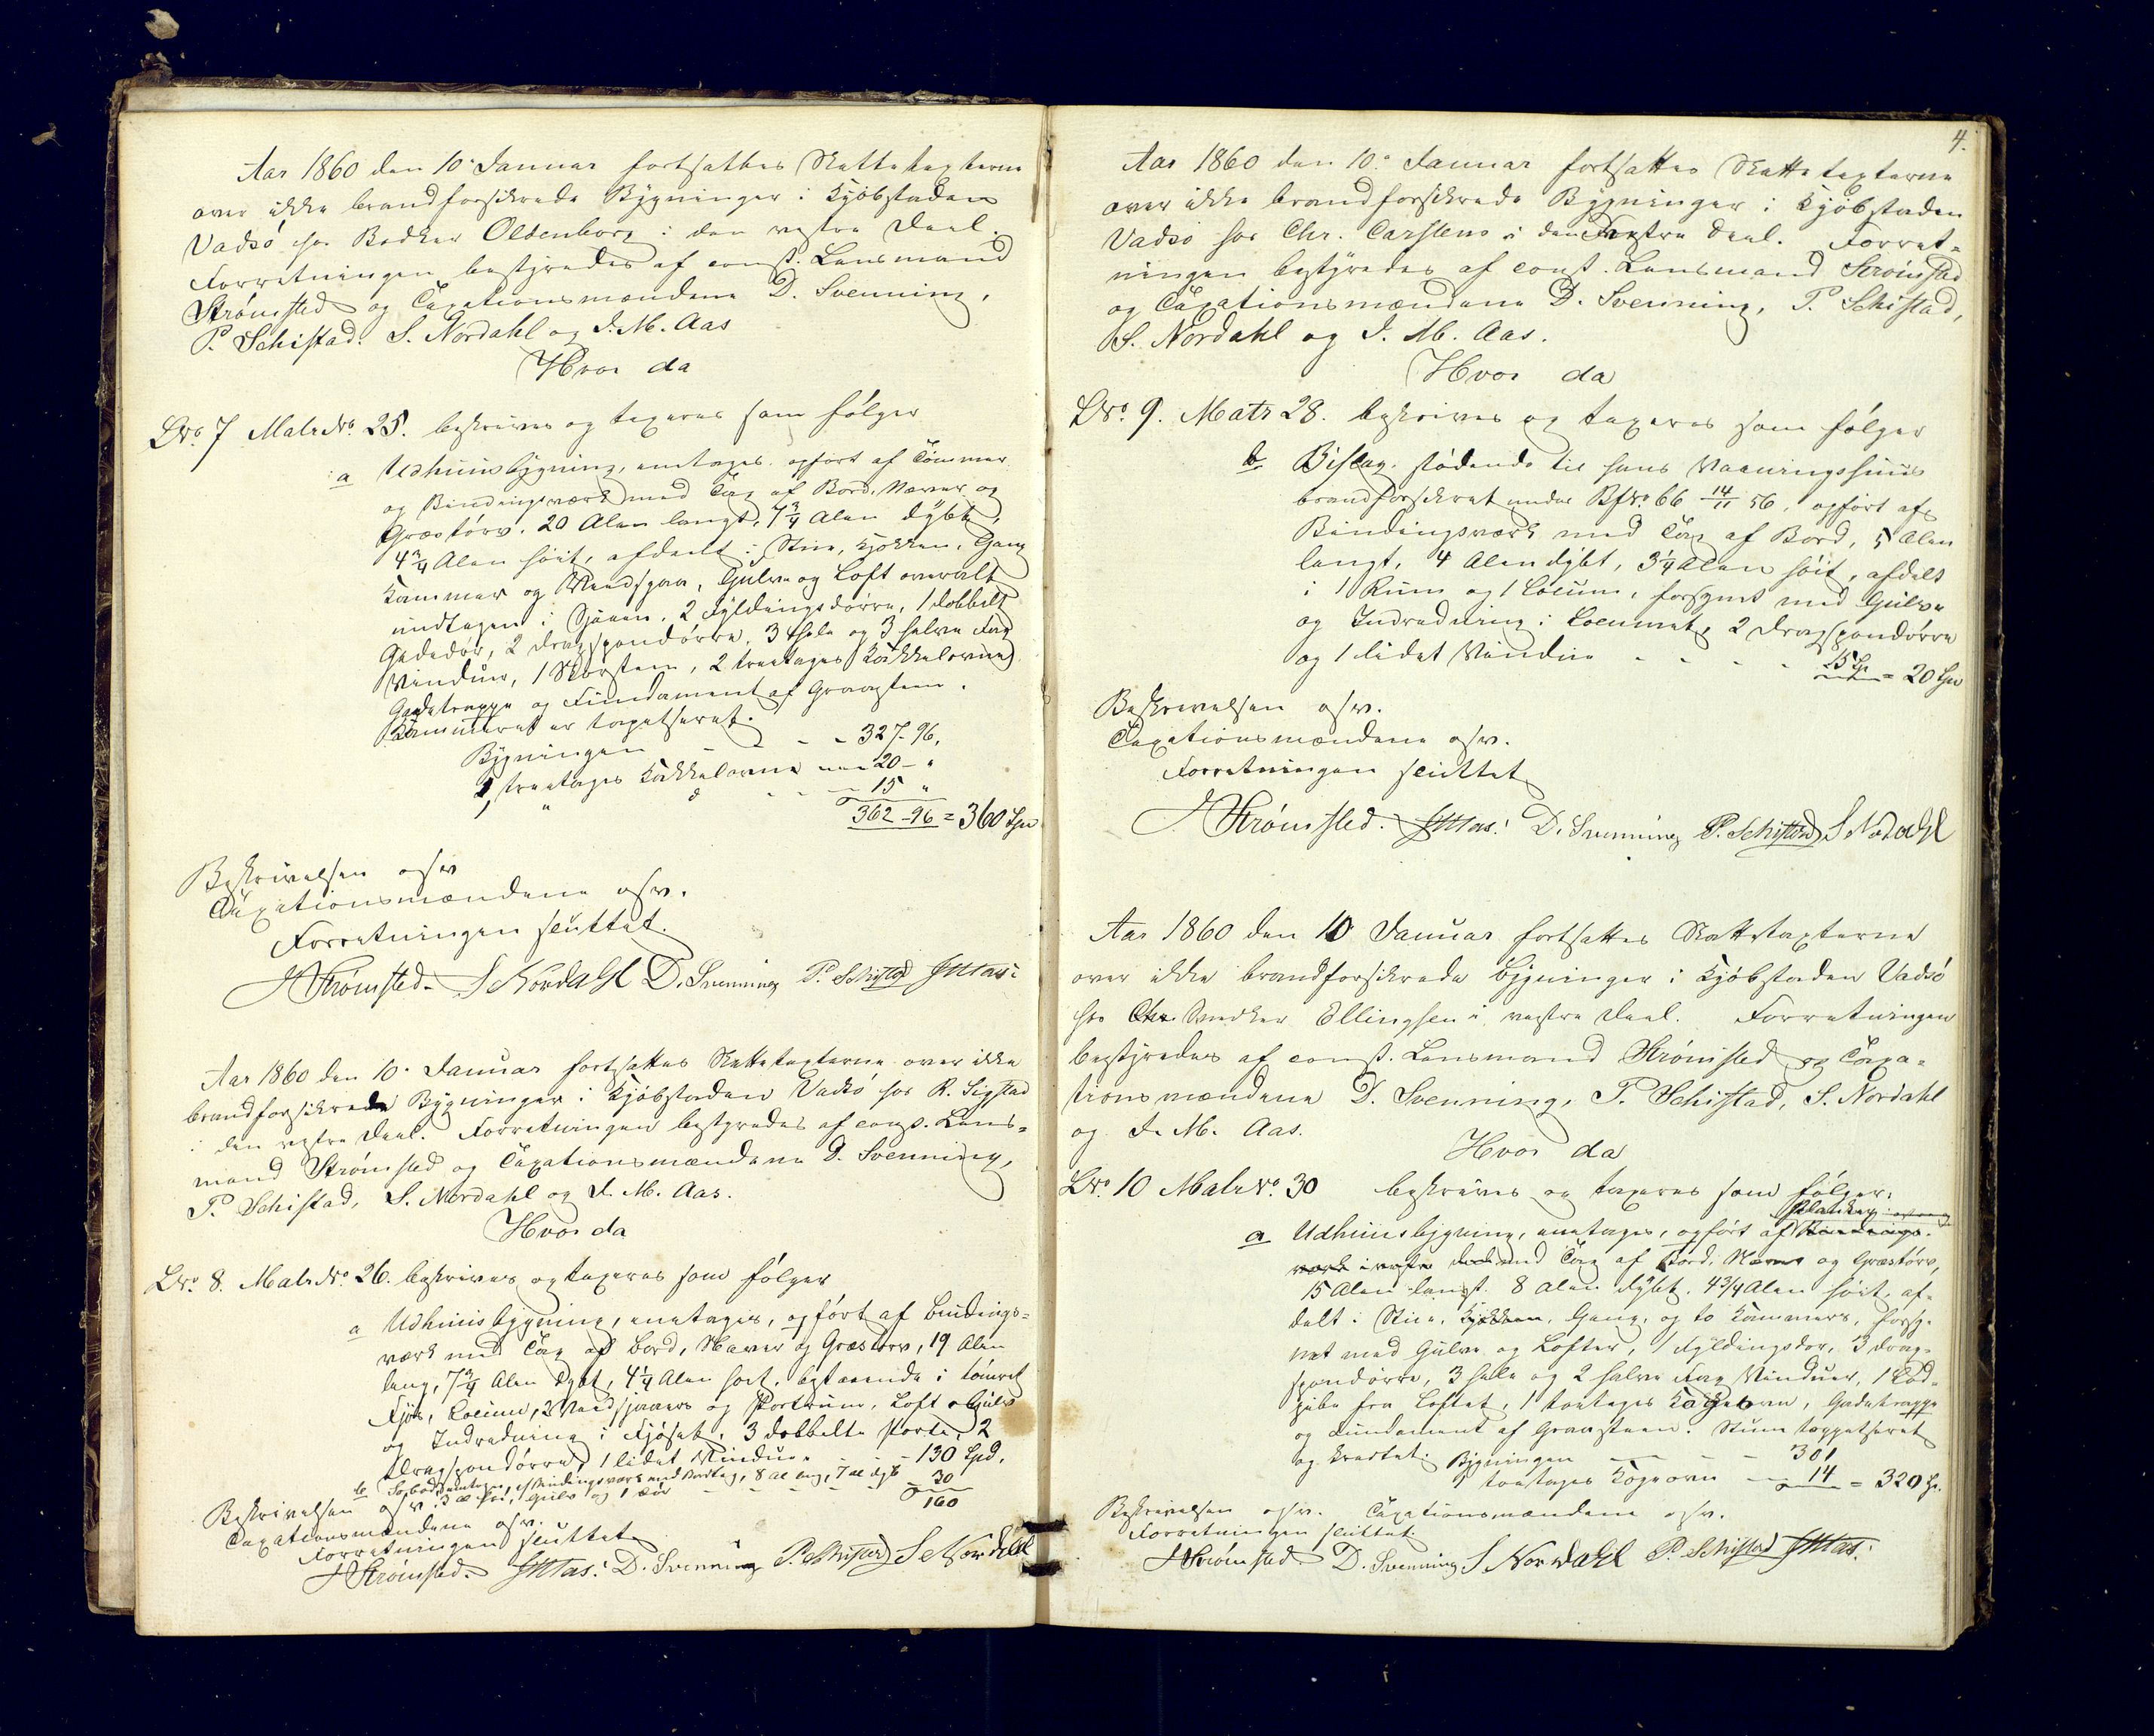 Aar 1860 den 10. Januar fortsattes Skattetaxterne
over ikke brandforsikrede Bygninger i Kjøbstaden
Vadsø hos Bødker Oldenborg i den vestre Deel.
Forretningen bestyredes af const. Lensmand
Strømsted og Taxationsmændene D. Svenning,
P. Schistad. S. Nordahl og J. M. Aas
Hvor da
LNo. 7 Matr No. 25. beskrives og taxeres som følger
a Udhuusbygning, eenetages opført af Tømmer
og Bindingsværk med Tag af Bord, Næver og
Græstørv. 20 Alen langt, 7 3/4 Alen dybt,
4 3/4 Alen høit, afdeelt i Stue, Kjøkken, Gang
Kammer og Vedsjaa, Gulve og Loft overalt
undtagen i Sjaaen, 2 Fyldingsdørre, 1 dobbelt
Gadedør, 2 dragspondørre, 3 hele og 3 halve Fag
Vinduer, 1 Skorsteen, 2 treetages Kakkelovne
Gadetrappe og Fundament af Graasteen.
Kammeret er tapetseret.
Bygningen - - - 327-96,
1 treetages Kakkelovne - 20 - "
1 " d - - - 15 "
362-96 = 360 Spd
Beskrivelsen osv
Taxationsmændene osv.
Forretningen sluttet.
Strømsted. S Nordahl D. Svenning P. Schistad JMAas.
Aar 1860 den 10. Januar fortsattes Skattetaxterne over ikke
brandforsikrede Bygninger i Kjøbstaden Vadsø hos R. Sigstad
i den vestre Deel. Forretningen bestyredes af const. Lens-
mand Strømsted og Taxationsmændene D. Svenning,
P. Schistad, S. Nordahl og J. M. Aas.
Hvor da
LNo. 8. Matr No. 26. beskrives og taxeres som følger
a Udhuusbygning, eenetages, opført af Bindings-
værk med Tag af Bord, Næver og Græstørv, 19 Alen
lang, 7 3/4 Alen dybt, 4 1/4 Alen høit, bestaaende i tømret
Fjøs, Locum, 2 Vedsjaaer og Portrum, Loft Gulv
og Indredning i Fjøset, 3 dobbelte Porte, 2
Dragspondørre, 1 lidet Vindue - - 130 Spd.
b eenetages, af Bindingsværk med Bordtag, 8 al lang, 7 al dybt
3 al høi, Gulv og 1 Dør - - - 30
160
Beskrivelsen osv.
Taxationsmændene osv.
Forretningen sluttet
Strømsted. JMAas. D. Svenning P. Schistad S Nordahl
4.
Aar 1860 den 10. Januar fortsattes Skattetaxterne
over ikke brandforsikrede Bygninger i Kjøbstaden
Vadsø hos Chr. Carstens i den vestre Deel. Forret-
ningen bestyredes af const. Lensmand Strømsted
og Taxationsmændene D. Svenning, P. Schistad,
S. Nordahl og J. M. Aas.
Hvor da
LNo. 9. Matr 28. beskrives og taxeres som følger
b Bislag, stødende til hans Vaaningshuus
brandforsikret under BfNo. 66 14/11 56, opført af
Bindingsværk med Tag af Bord, 5 Alen
langt, 4 Alen dybt, 3 1/4 Alen høit, afdelt
i 1 Rum og 1 Locum, forsynet med Gulve
og Indredning i Locumet, 2 dragspondørre
og 1 lidet Vindue - - - - 15 Sp = 20 Spd
Beskrivelsen osv.
Taxationsmændene osv.
Forretningen sluttet
Strømsted. JMAas. D. Svenning P. Schistad S Nordahl
Aar 1860 den 10 Januar fortsattes Skattetaxterne
over ikke brandforsikrede Bygninger i Kjøbstaden Vadsø
hos Chr. Snedker Ellingsen i vestre Deel. Forretningen
bestyredes af const. Lensmand Strømsted og Taxa-
tionsmændene D. Svenning, P. Schistad, S. Nordahl
og J. M. Aas.
Hvor da
LNo. 10 Matr No. 30 beskrives og taxeres som følger.
Planker
a Udhuusbygning, eenetages, opført af Bindings-
værk med Tag af Bord, Næver og Græstørv,
15 Alen langt. 8 Alen dybt. 4 3/4 Alen høit, af-
delt i Stue, Kjøkken, Gang, og to Kammers, forsy-
net med Gulve og Lofter, 1 Fyldingsdør, 3 drag-
spondørre, 3 hele og 2 halve Fag Vinduer, 1 Lød-
pibe fra Loftet, 1 toetages Kogeovn, Gadetrappe
og Fundament af Graasteen. Stuen tappetseret
og Bygningen - - - 301
1 toetages Kogeovn - - 14 = 320 Sp.
Beskrivelsen osv. Taxationsmændene osv.
Forretningen sluttet.
Strømsted D. Svenning S Nordahl P. Schistad JMAas.